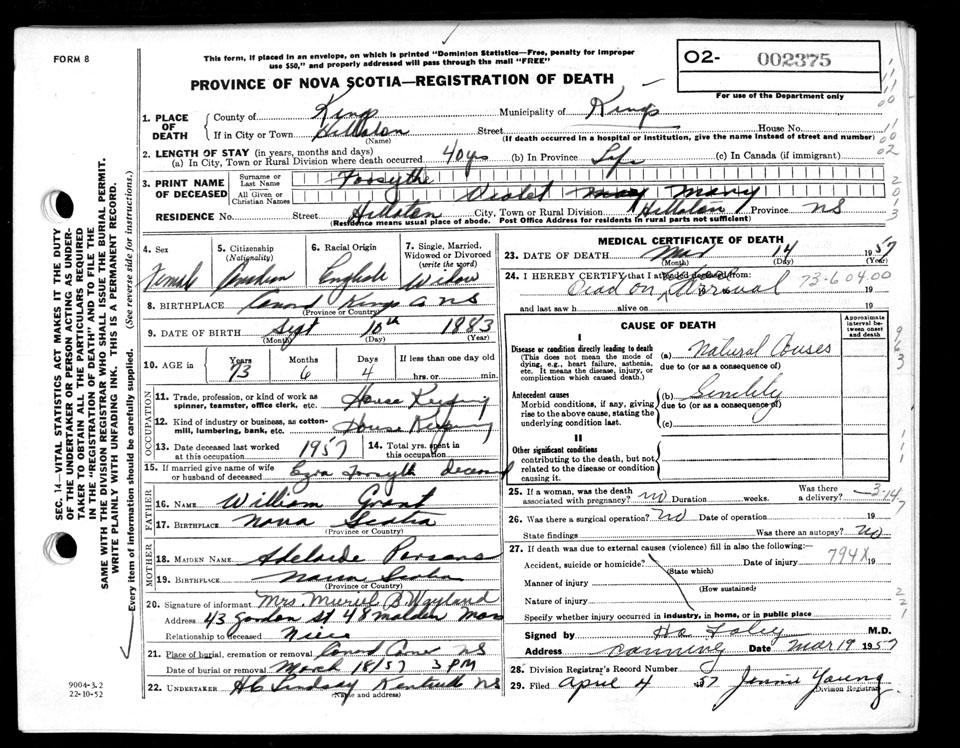 FORM 8
This form, if placed in an envelope, on which is printed "Dominion Statistics—Free, penalty for improper
use $50," and properly addressed will pass through the mail "FREE"
PROVINCE OF NOVA SCOTIA—REGISTRATION OF DEATH
O2- 002375
For use of the Department only
SEC. 14—VITAL STATISTICS ACT MAKES IT THE DUTY
OF THE UNDERTAKER OR PERSON ACTING AS UNDER-
TAKER TO OBTAIN ALL THE PARTICULARS REQUIRED
IN THE "REGISTRATION OF DEATH" AND TO FILE THE
SAME WITH THE DIVISION REGISTRAR WHO SHALL ISSUE THE BURIAL PERMIT.
WRITE PLAINLY WITH UNFADING INK. THIS IS A PERMANENT RECORD.
Every item of information should be carefully supplied. (See reverse side for instructions.)
1. PLACE OF DEATH
County of Kings Municipality of Kings
If in City or Town Hillaton Street House No.
(Name) (If death occurred in a hospital or institution, give the name instead of street and number)
2. LENGTH OF STAY (in years, months and days)
(a) In City, Town or Rural Division where death occurred 40 yrs (b) In Province Life (c) In Canada (if immigrant)
3. PRINT NAME OF DECEASED
Surname or Last Name Forsythe
All Given or Christian Names Violet May Mary
RESIDENCE No. Street Hillaton City, Town or Rural Division Hillaton Province NS
(Residence means usual place of abode. Post Office Address for residents in rural parts not sufficient)
4. Sex Female
5. Citizenship (Nationality) Canadian
6. Racial Origin English
7. Single, Married, Widowed or Divorced (write the word) Widow
8. BIRTHPLACE Canard Kings Co NS
(Province or Country)
9. DATE OF BIRTH Sept 10th 1883
(Month) (Day) (Year)
10. AGE in Years 73 Months 6 Days 4 If less than one day old hrs. or min.
OCCUPATION
11. Trade, profession, or kind of work as spinner, teamster, office clerk, etc. House Keeping
12. Kind of industry or business, as cotton-mill, lumbering, bank, etc. House Keeping
13. Date deceased last worked at this occupation 1957 14. Total yrs. spent in this occupation
15. If married give name of wife or husband of deceased Ezra Forsyth deceased
FATHER
16. NAME William Grant
17. BIRTHPLACE Nova Scotia
(Province or Country)
MOTHER
18. MAIDEN NAME Adelaide Parsons
19. BIRTHPLACE Nova Scotia
(Province or Country)
20. Signature of informant Mrs. Muriel B. Wayland
Address 43 Gordon St 48 Malden Mass
Relationship to deceased Niece
21. Place of burial, cremation or removal Canard NS
Date of burial or removal March 18/57 3 PM
22. UNDERTAKER H C Lindsay Kentville NS
(Name and address)
9004-3.2
22-10-52
MEDICAL CERTIFICATE OF DEATH
23. DATE OF DEATH Mar 14 1957
(Month) (Day) (Year)
24. I HEREBY CERTIFY that I attended deceased from: 73-6 04.00
Dead on Arrival 19
and last saw h alive on 19
CAUSE OF DEATH
Approximate interval between onset and death
I
Disease or condition directly leading to death
(This does not mean the mode of dying, e.g., heart failure, asthenia, etc. It means the disease, injury, or complication which caused death.)
(a) Natural Causes
due to (or as a consequence of)
Antecedent causes
Morbid conditions, if any, giving rise to the above cause, stating the underlying condition last.
(b) Senility
due to (or as a consequence of)
(c)
II
Other significant conditions
contributing to the death, but not related to the disease or condition causing it.
25. If a woman, was the death associated with pregnancy? no Duration weeks. Was there a delivery? —3-14-7
26. Was there a surgical operation? no Date of operation 19
State findings Was there an autopsy? no
27. If death was due to external causes (violence) fill in also the following:—
Accident, suicide or homicide? Date of injury 794X 19
(State which)
Manner of injury
(How sustained)
Nature of injury
Specify whether injury occurred in industry, in home, or in public place
Signed by H. Foley M.D.
Address Canning Date Mar 19 1957
28. Division Registrar's Record Number
29. Filed April 4 57 Jennie Young
Division Registrar